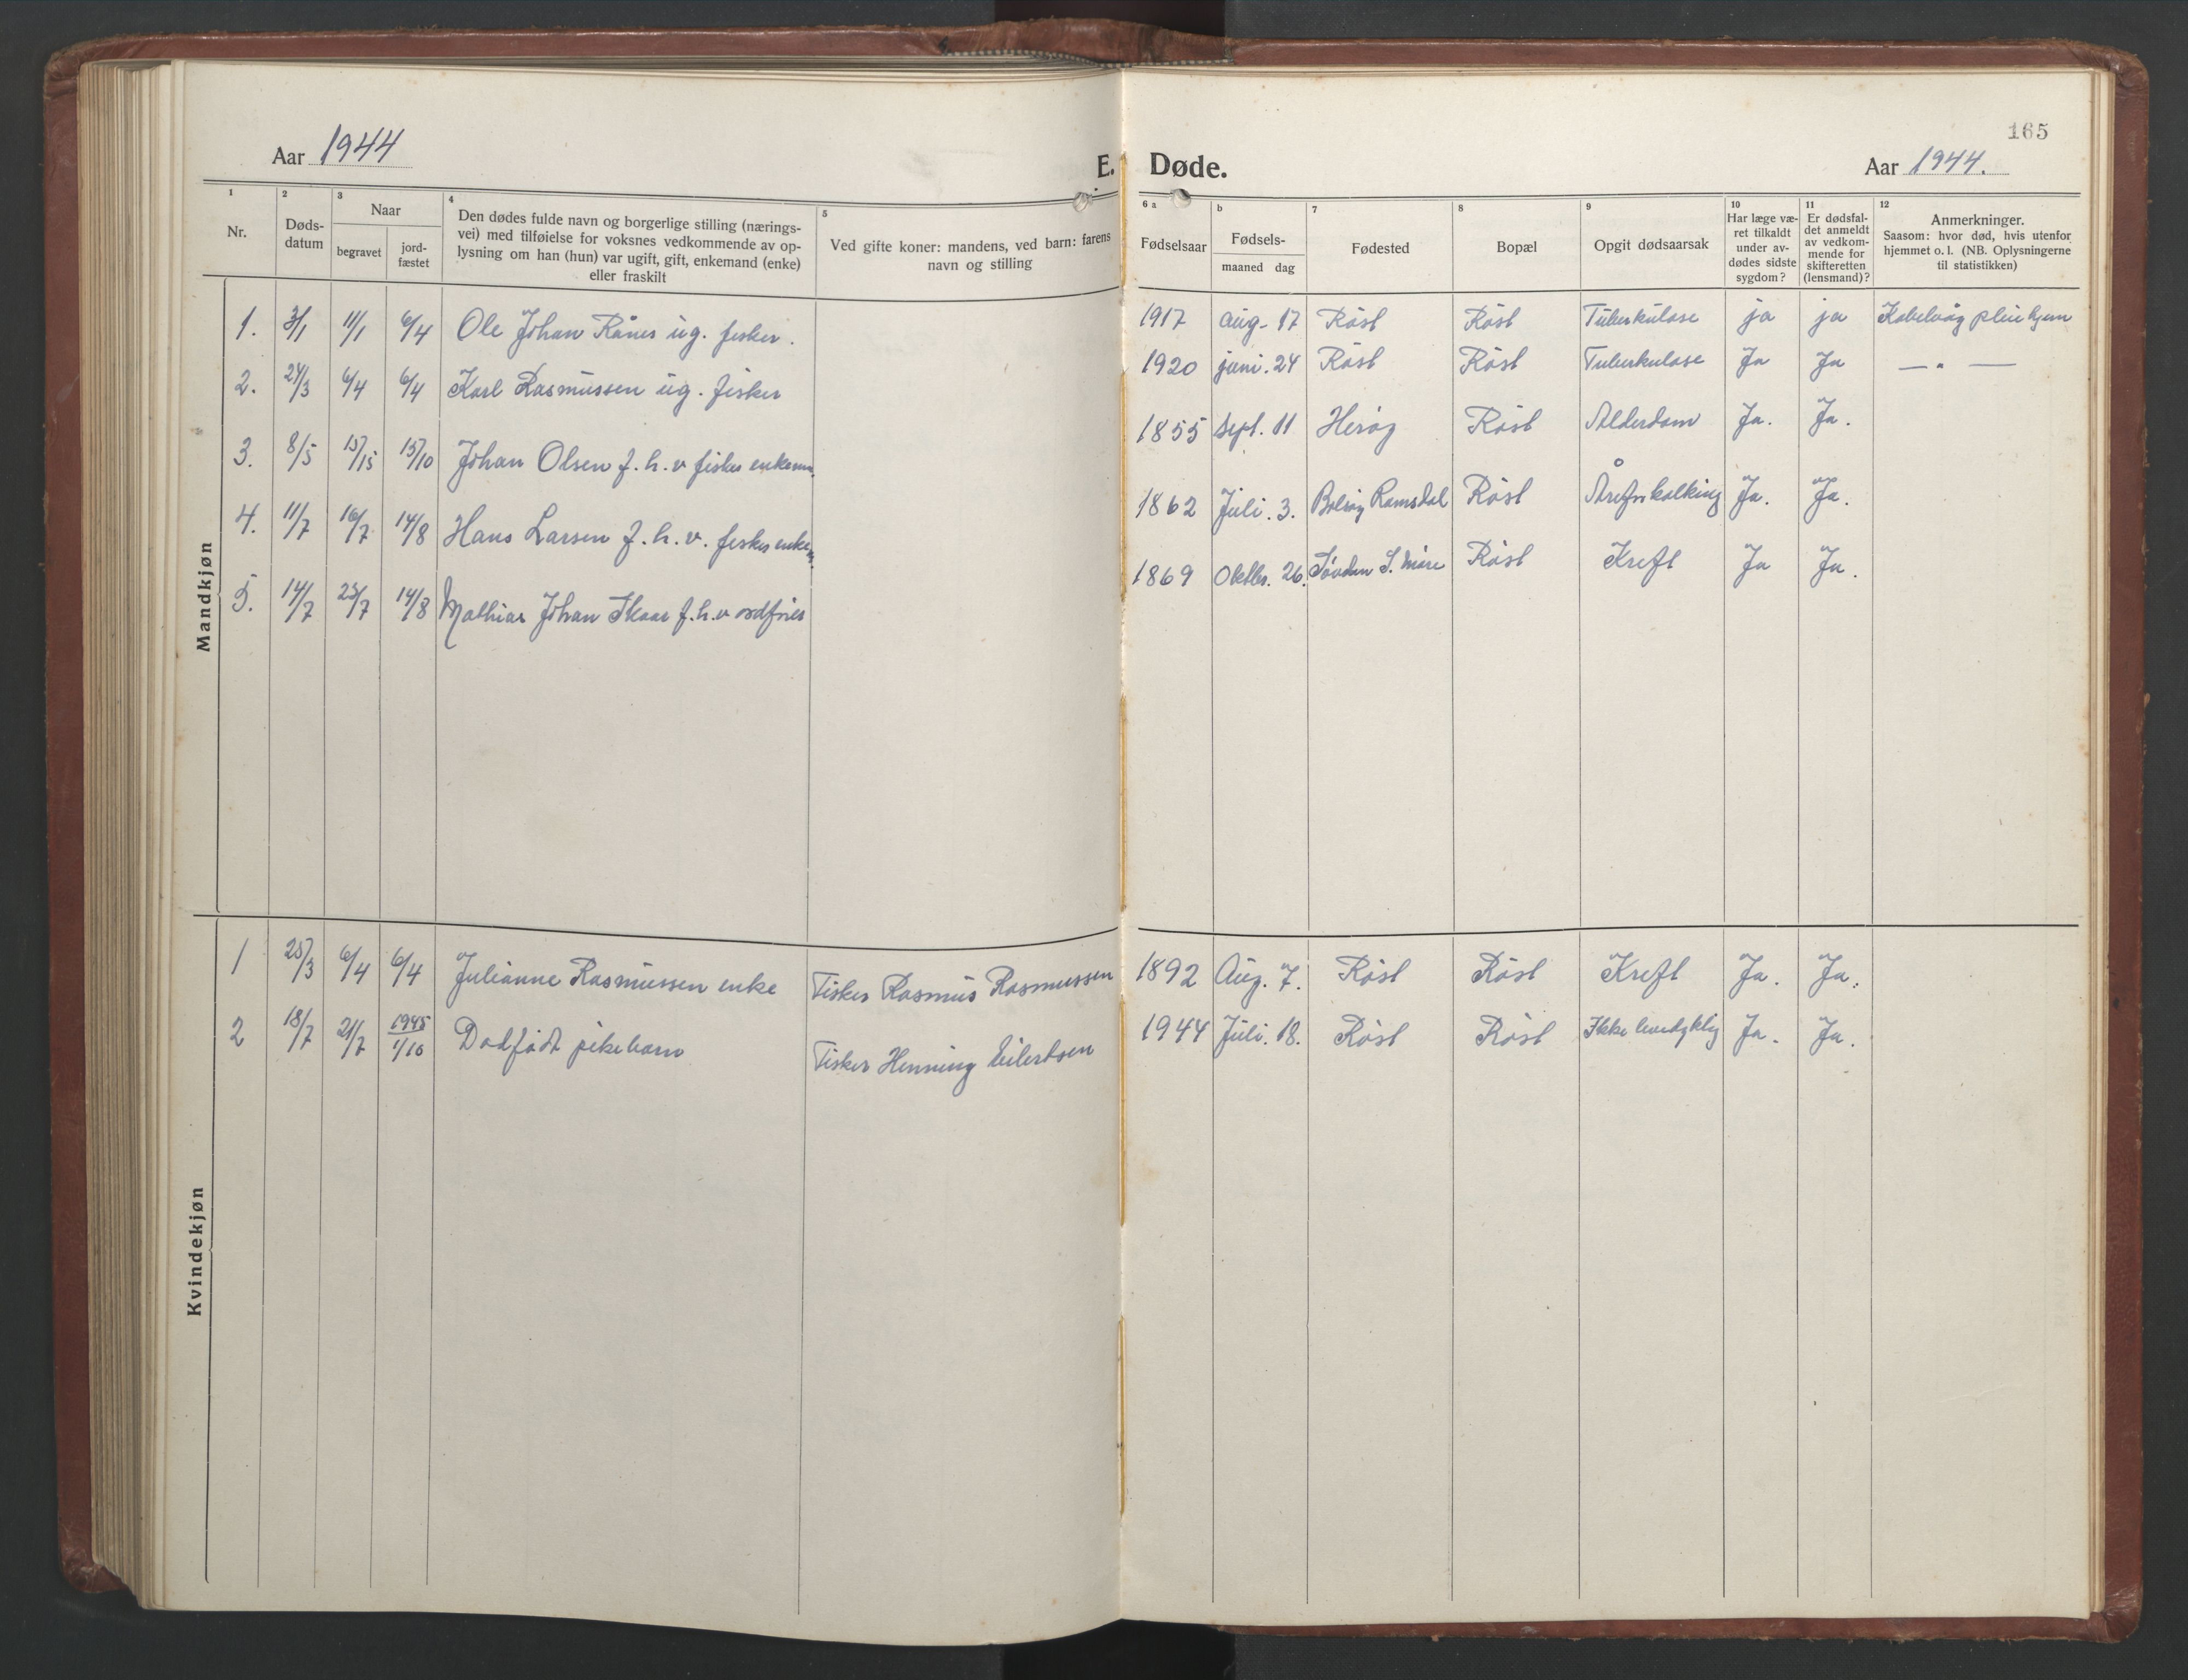 165
Aar 1944
E. Døde.
Aar 1944.
1 2 3 4 5 6 a b 7 8 9 10 11 12
Nr.
Døds-
datum
Naar
begravet
jord-
fæstet
Den dødes fulde navn og borgerlige stilling (nærings-
vei) med tilføielse for voksnes vedkommende av op-
lysning om han (hun) var ugift, gift, enkemand (enke)
eller fraskilt
Ved gifte koner: mandens, ved barn: farens
navn og stilling
Fødselsaar
Fødsels-
maaned dag
Fødested
Bopæl
Opgit dødsaarsak
Har læge væ-
ret tilkaldt
under av-
dødes sidste
sygdom?
Er dødsfal-
det anmeldt
av vedkom-
mende for
skifteretten
(lensmand)?
Anmerkninger.
Saasom: hvor død, hvis utenfor
hjemmet o. l. (NB. Oplysningerne
til statistikken)
Mandkjøn
1. 3/1 11/1 6/4 Ole Johan Rånes ug. fisker. 1917 Aug- 17 Røst Røst Tuberkulose ja ja Kabelvåg pleiehjem
2. 24/3 6/4 6/4 Karl Rasmussen ug. fisker 1920 juni. 24 Røst Røst Tuberkulose Ja Ja — " —
3. 8/5 15/15 15/10 Johan Olsen f. h. v fisker enkem. 1855 Sept. 11 Herøy Røst Alderdom Ja. Ja.
4. 11/7 16/7 14/8 Hans Larsen f. h. v. fisker enkem. 1862 Juli. 3. Bolsøy Romsdal Røst Åreforkalking Ja. Ja.
5. 14/7 25/7 14/8 Mathias Johan Skaar f. h. v 1869 Oktbr. 26. S. Møre Røst Kreft Ja Ja.
Kvindekjøn
1 25/3 6/4 6/4 Julianne Rasmussen enke Fisker Rasmus Rasmussen 1892 Aug. 7. Røst Røst Kreft Ja. Ja.
2 18/7 21/7 1945 1/10 Dødfødt pikebarn Fisker Henning Eilertsen 1944 Juli. 18. Røst Røst Ikke levedyktig Ja. Ja.